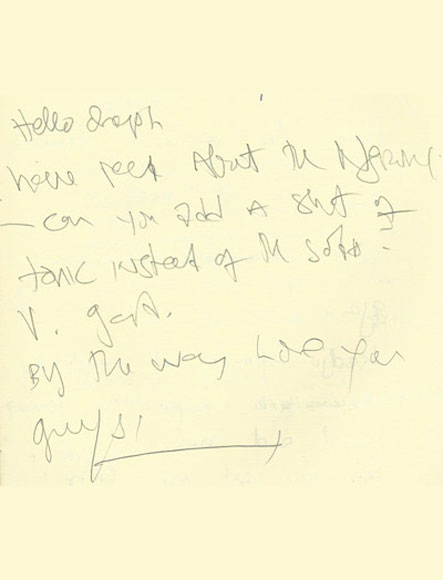 Hello
have read About the
– can you add A shot of
tonic instead of the soda –
V.
By the way, Love you
guys!